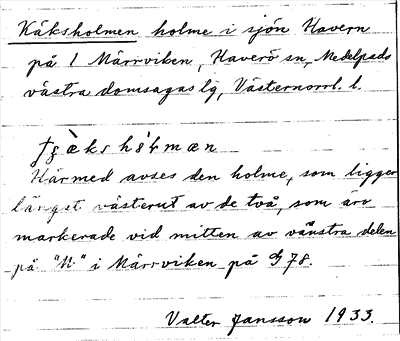 Käksholmen holme i sjön Havern
på l Märrviken, Haverö sn, Medelpads
västra domsagas lg, Västernorrl. l.
Härmed avses den holme, som ligger
längst västerut av de två, som äro
markerade vid mitten av vänstra delen
på "M" i Märrviken på G78.
Valter Jansson 1933.